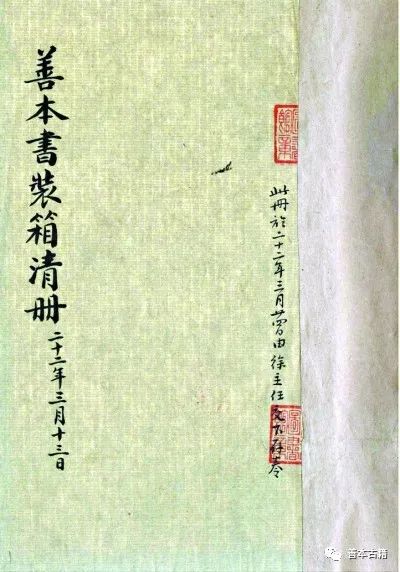 善本書裝箱清册
二十二年三月十三日
此册於二十二年三月曾由徐主任
善本古籍